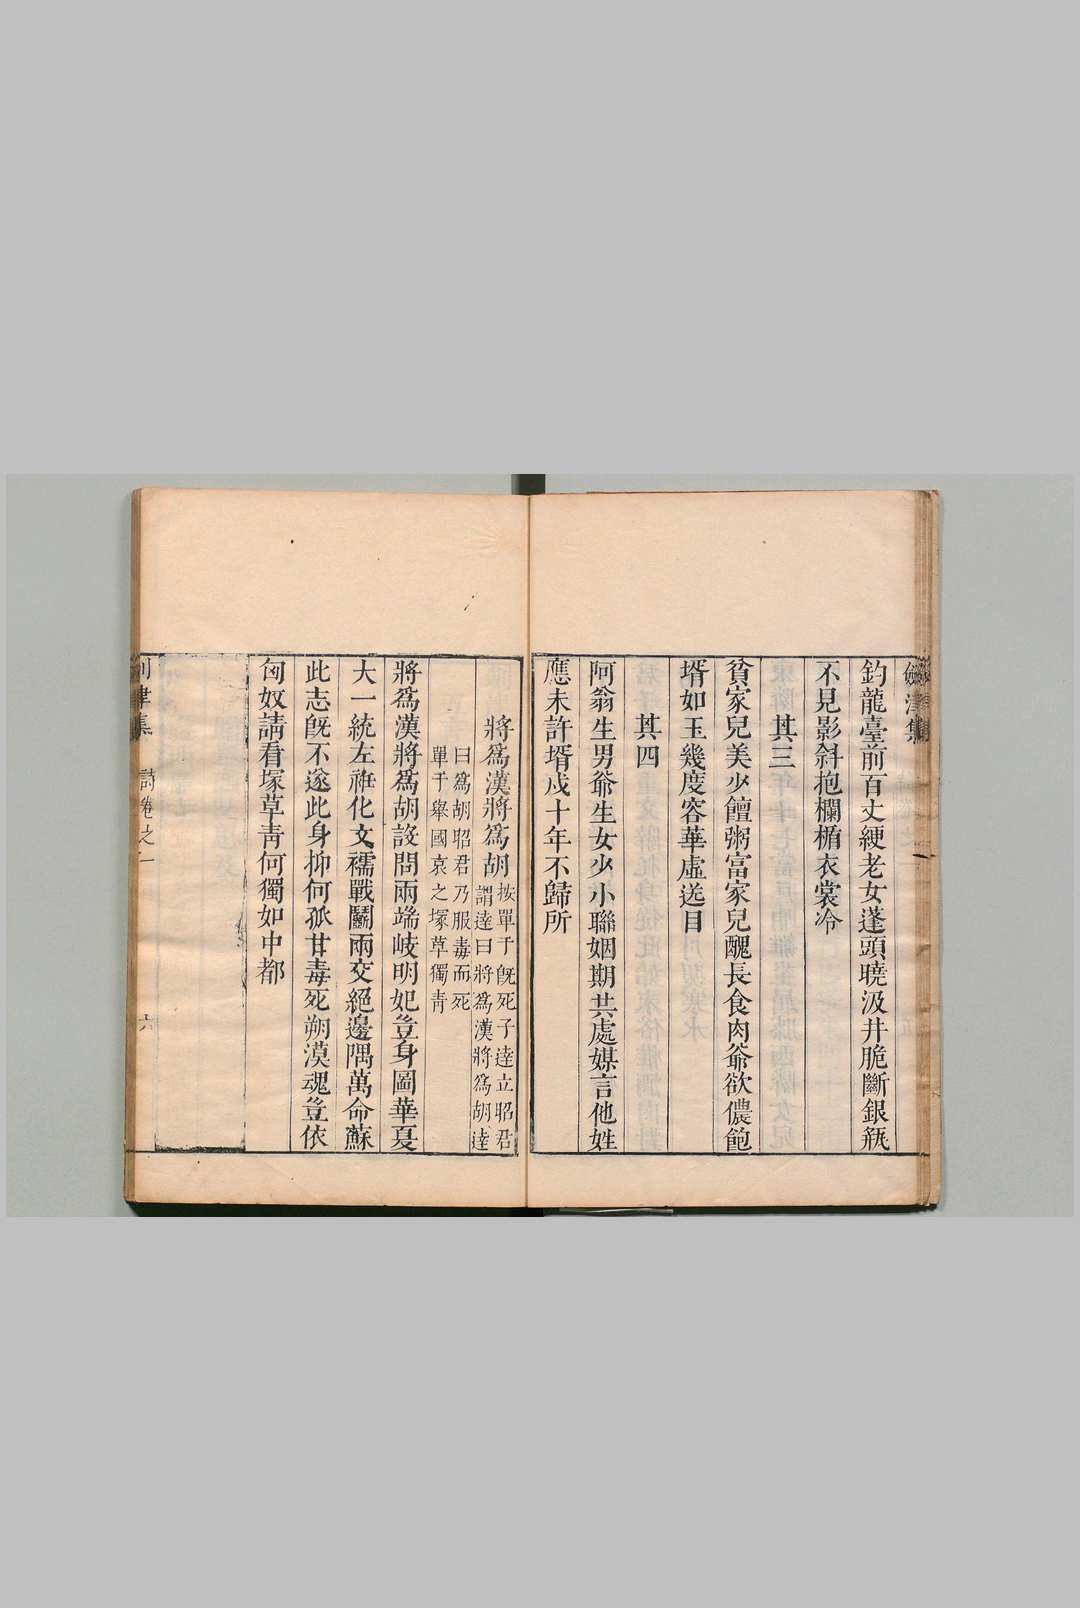 釣龍臺前百丈綆老女蓬頭曉汲井脆斷銀瓶
不見影斜抱欄楯衣裳冷
其三
貧家兒美少饘粥富家兒醜長食肉爺欲儂飽
壻如玉幾度容華虛送目
其四
阿翁生男爺生女少小聯姻期共處媒言他姓
應未許壻戍十年不歸所
將爲漢將爲胡
按單于旣死子達立昭君
謂達曰將爲漢將爲胡達
曰爲胡昭君乃服毒而死
單于舉國哀之塚草獨青
將爲漢將爲胡設問兩端岐明妃豈身圖華夏
大一統左袵化文襦戰鬭兩交絕邊隅萬命蘇
此志旣不遂此身抑何孤甘毒死朔漠魂豈依
匈奴請看塚草青何獨如中都
津集
詩卷之一
六